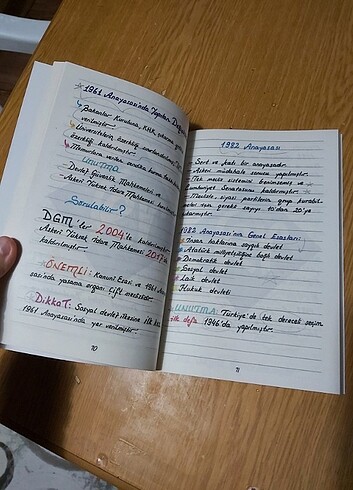 1961 Anayasası'nda Yapılan
Bakanlar Kuruluna, KHK çıkarma
verilmiştir.
Üniversitelerin özerkliği
özerkliği kaldırılmıştır.
Memurlara verilen sendika kurma
UNUTMA
Devlet Güvenlik Mahkemeleri ve
Askeri Yüksek İdare Mahkemesi
Sorulabilir?
DGM'ler 2004'te kaldırılmıştır.
Askeri Yüksek İdare Mahkemesi 2017'de
kaldırılmıştır.
ÖNEMLİ: Kanuni Esasi ve 1961 Anaya-
sası'nda yasama organı çift meclislidir.
DİKKAT: Sosyal devlet ilkesine ilk kez
1961 Anayasası'nda yer verilmiştir.
10
1982 Anayasası
Sert ve katı bir anayasadır.
Askeri müdahale sonucu yapılmıştır.
Tek meclis sistemini benimsemiş ve
Cumhuriyet Senatosunu kaldırmıştır.
Mecliste, siyasi partilerin grup kurabil-
meleri için gerekli sayıyı 10'dan 20'ye
çıkarmıştır.
1982 Anayasası'nın Genel Esasları:
İnsan haklarına saygılı devlet
Atatürk milliyetçiliğine bağlı devlet
Demokratik devlet
Sosyal devlet
Laik devlet
Hukuk devleti
UNUTMA: Türkiye'de tek dereceli seçim
ilk defa 1946'da yapılmıştır.
11